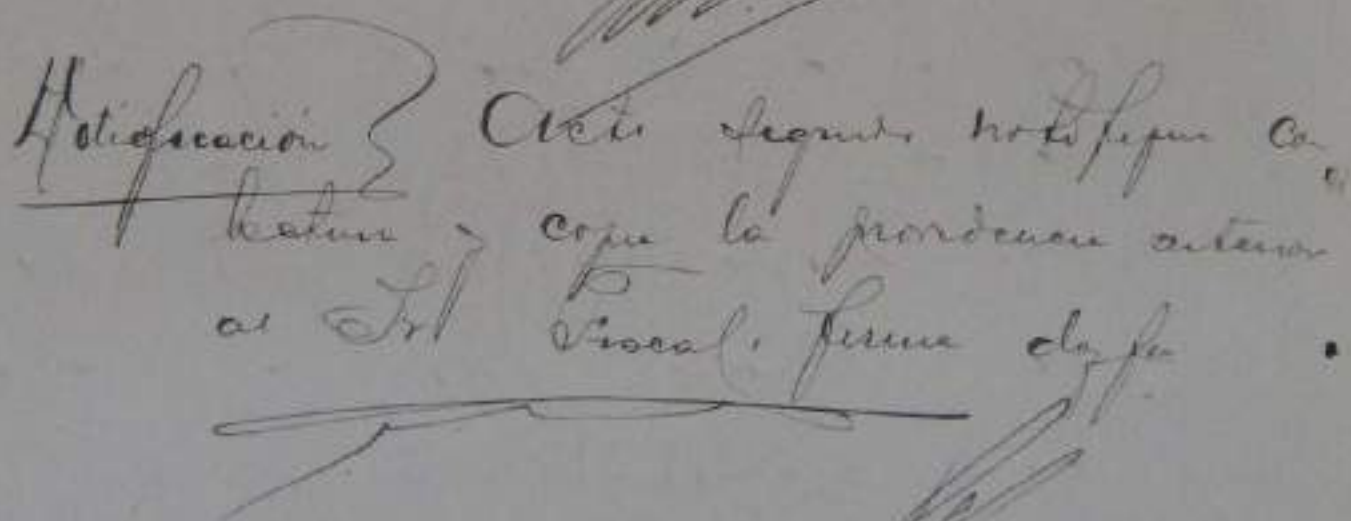 Notificación } Acto seguido notifique con
lectura y copia la providencia anterior
al Sr Fiscal. firma doy fe